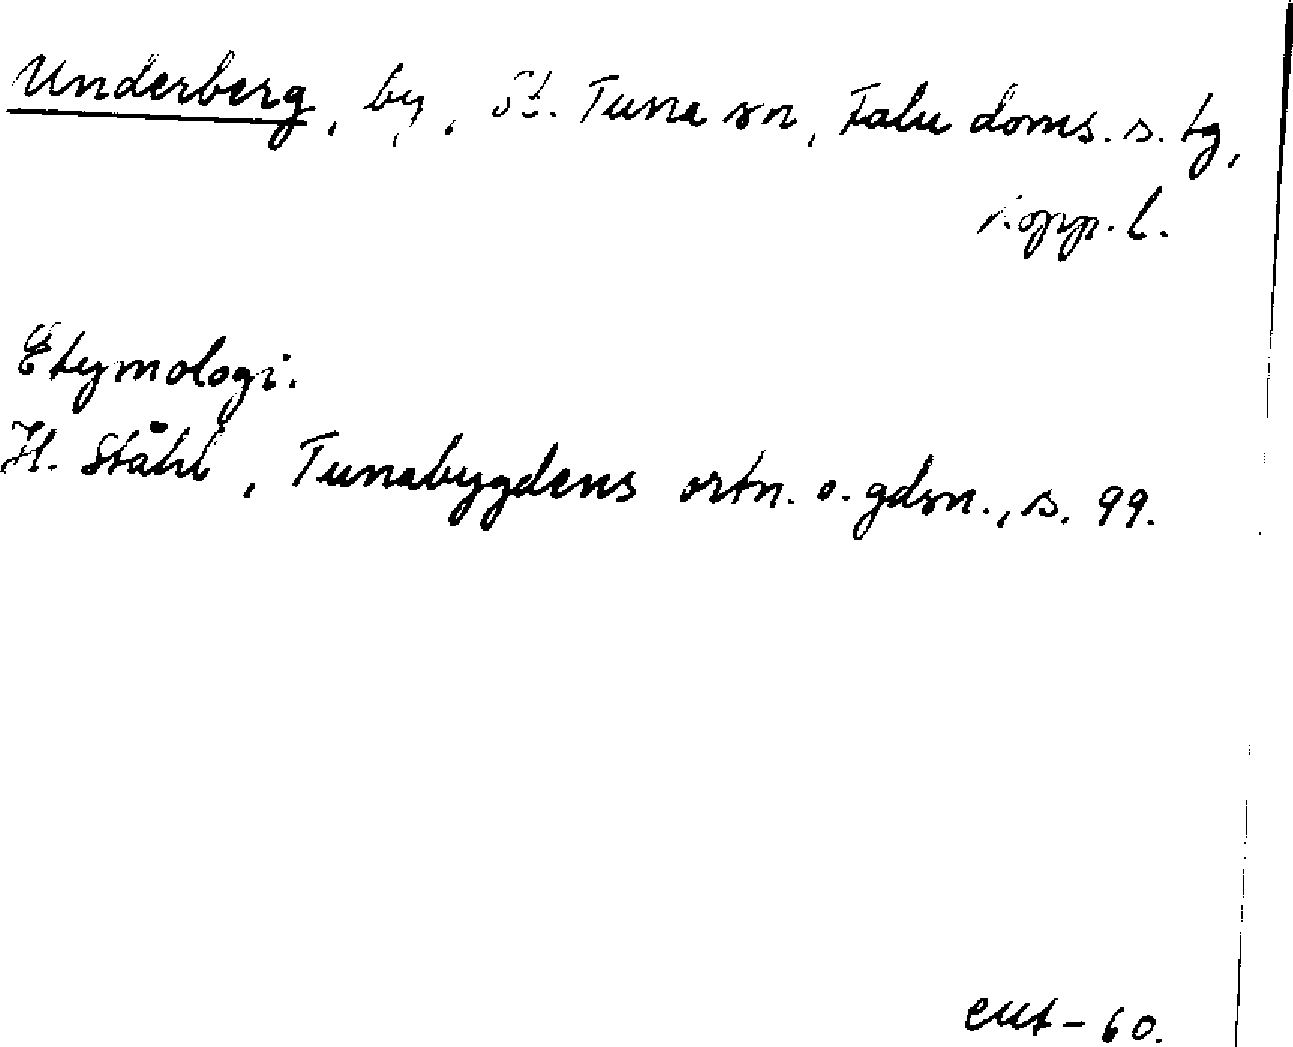 Underberg, by, St. Tuna sn, Falu doms. s. tg,
Kopp. l.
Etymologi.
H. Ståhl, Tunabygdens ortn. o. gdsn., s. 99.
- 60.